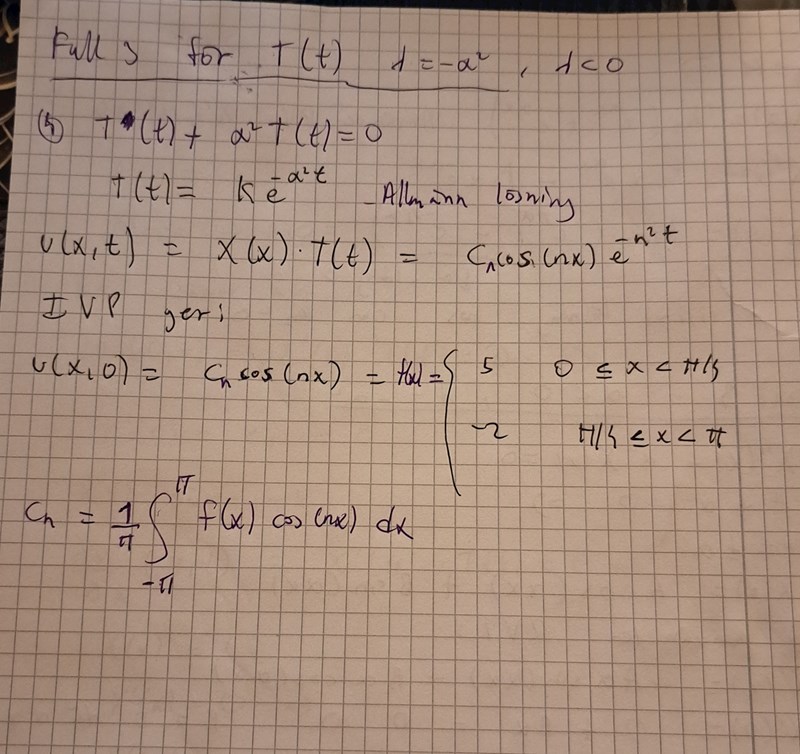 Fall 3 for T(t) λ = -α², λ < 0
(4) T'(t) + α² T(t) = 0
T(t) = K e^{-α²t} - Allmänn lösning
U(x,t) = X(x) · T(t) = Cₙ cos(nx) e^{-n²t}
IVP ger:
U(x,0) = Cₙ cos(nx) = f(x) = { 5 0 ≤ x < π/3
-2 π/3 ≤ x < π
Cₙ = 1/π ∫_{-π}^{π} f(x) cos(nx) dx